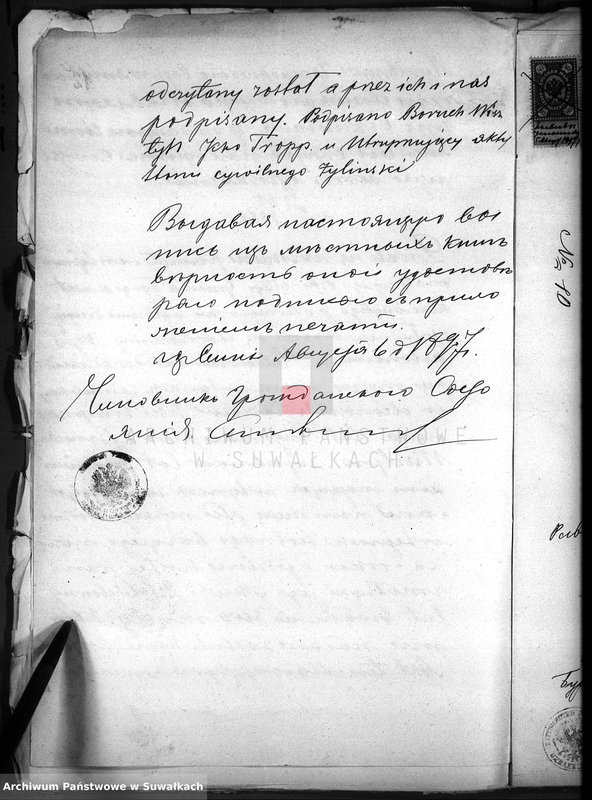 odczytany został a przez ich i nas
podpisany. Podpisano Boruch Wisz
tycki Tropp. u Utrzymujący akty
Stanu cywilnego Żyliński
Выдавая настоящую вы
пись изъ мѣстныхъ книгъ
вѣрность оной удостовѣ
ряю подписью съ прило
женіемъ печати.
Августа 6 д 1897 г.
Чиновникъ Гражданского Состо
янія
ARCHIWUM PAŃSTWOWE
W SUWAŁKACH
№ 10
Archiwum Państwowe w Suwałkach